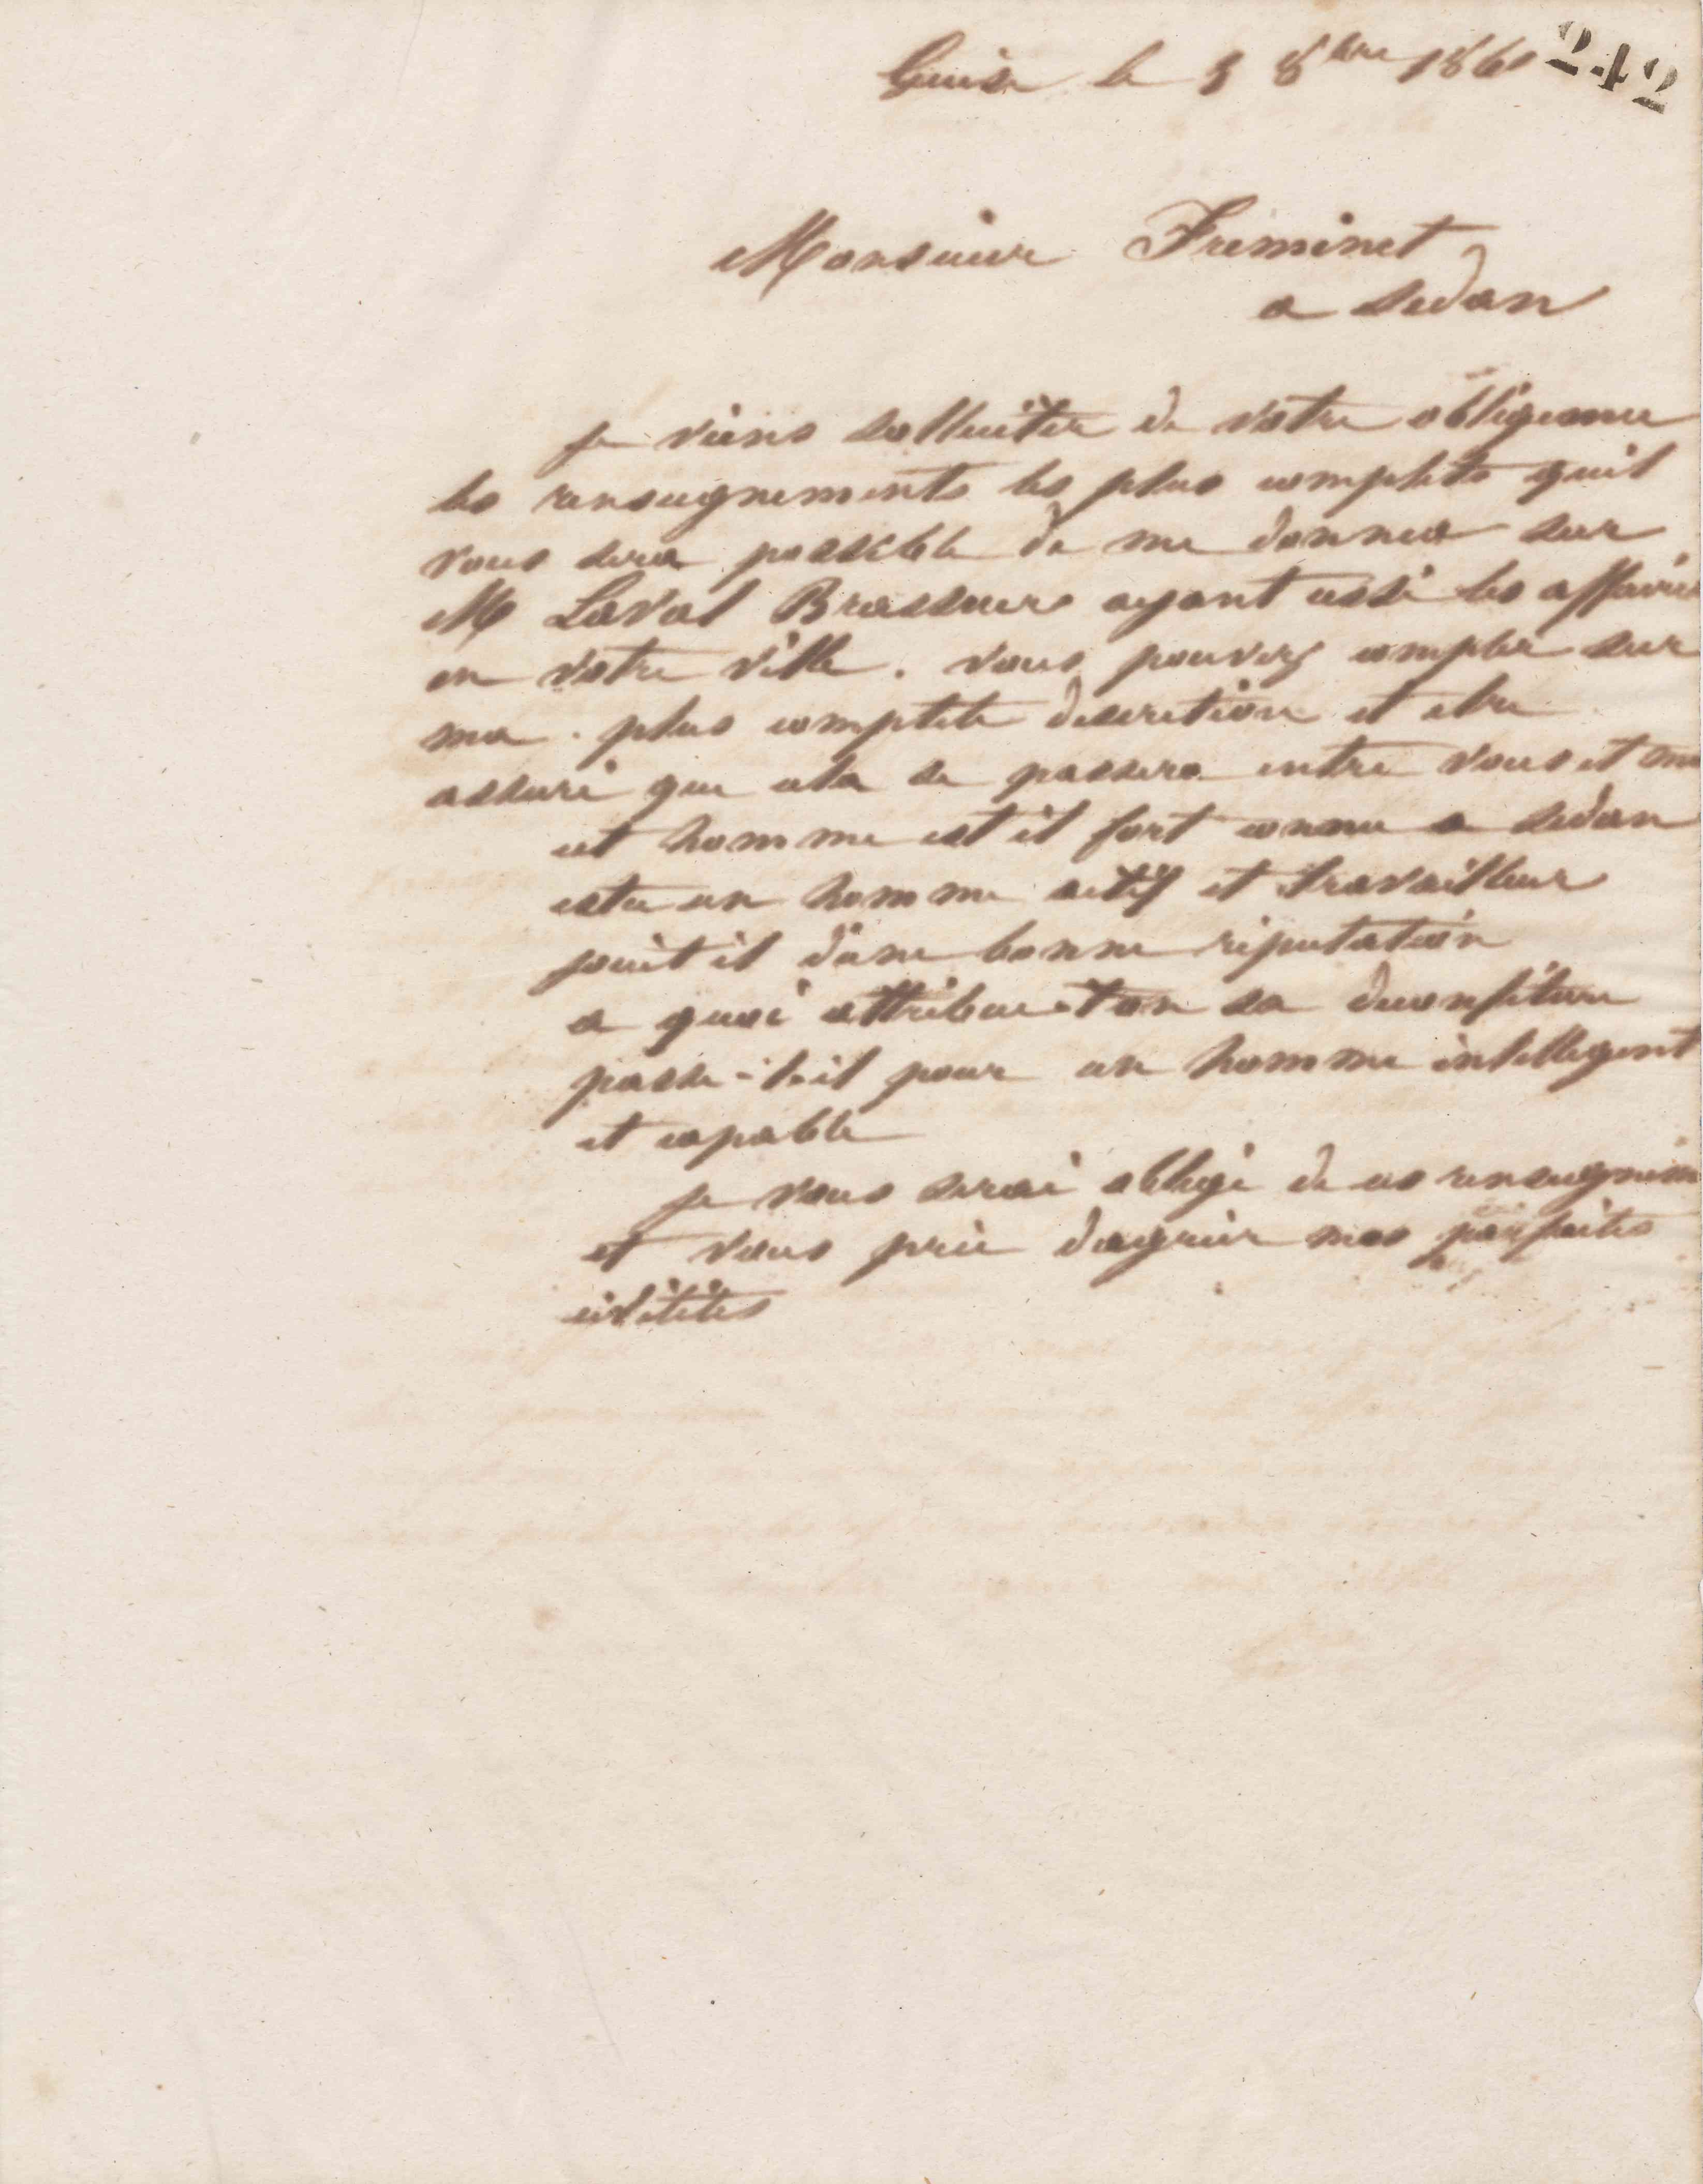 Guise le 3 8bre 1860 242
Monsieur Freminet
a Sedan
je viens solliciter de votre obligeance
les renseignements les plus complets quil
vous sera possible de me donner sur
M Laval Brasseur ayant cessé les affaires
en votre ville. vous pouvez compter sur
ma plus complete discretion et etre
assuré que cela se passera entre vous et
cet homme est il fort connu a sedan
estce un homme actif et travailleur
jouit il dune bonne réputation
a quoi attribue-t on sa deconfiture
passe-t-il pour un homme intelligent
et capable
je vous serai obligé de ces renseignem
et vous prie dagréer mes parfaites
civilités